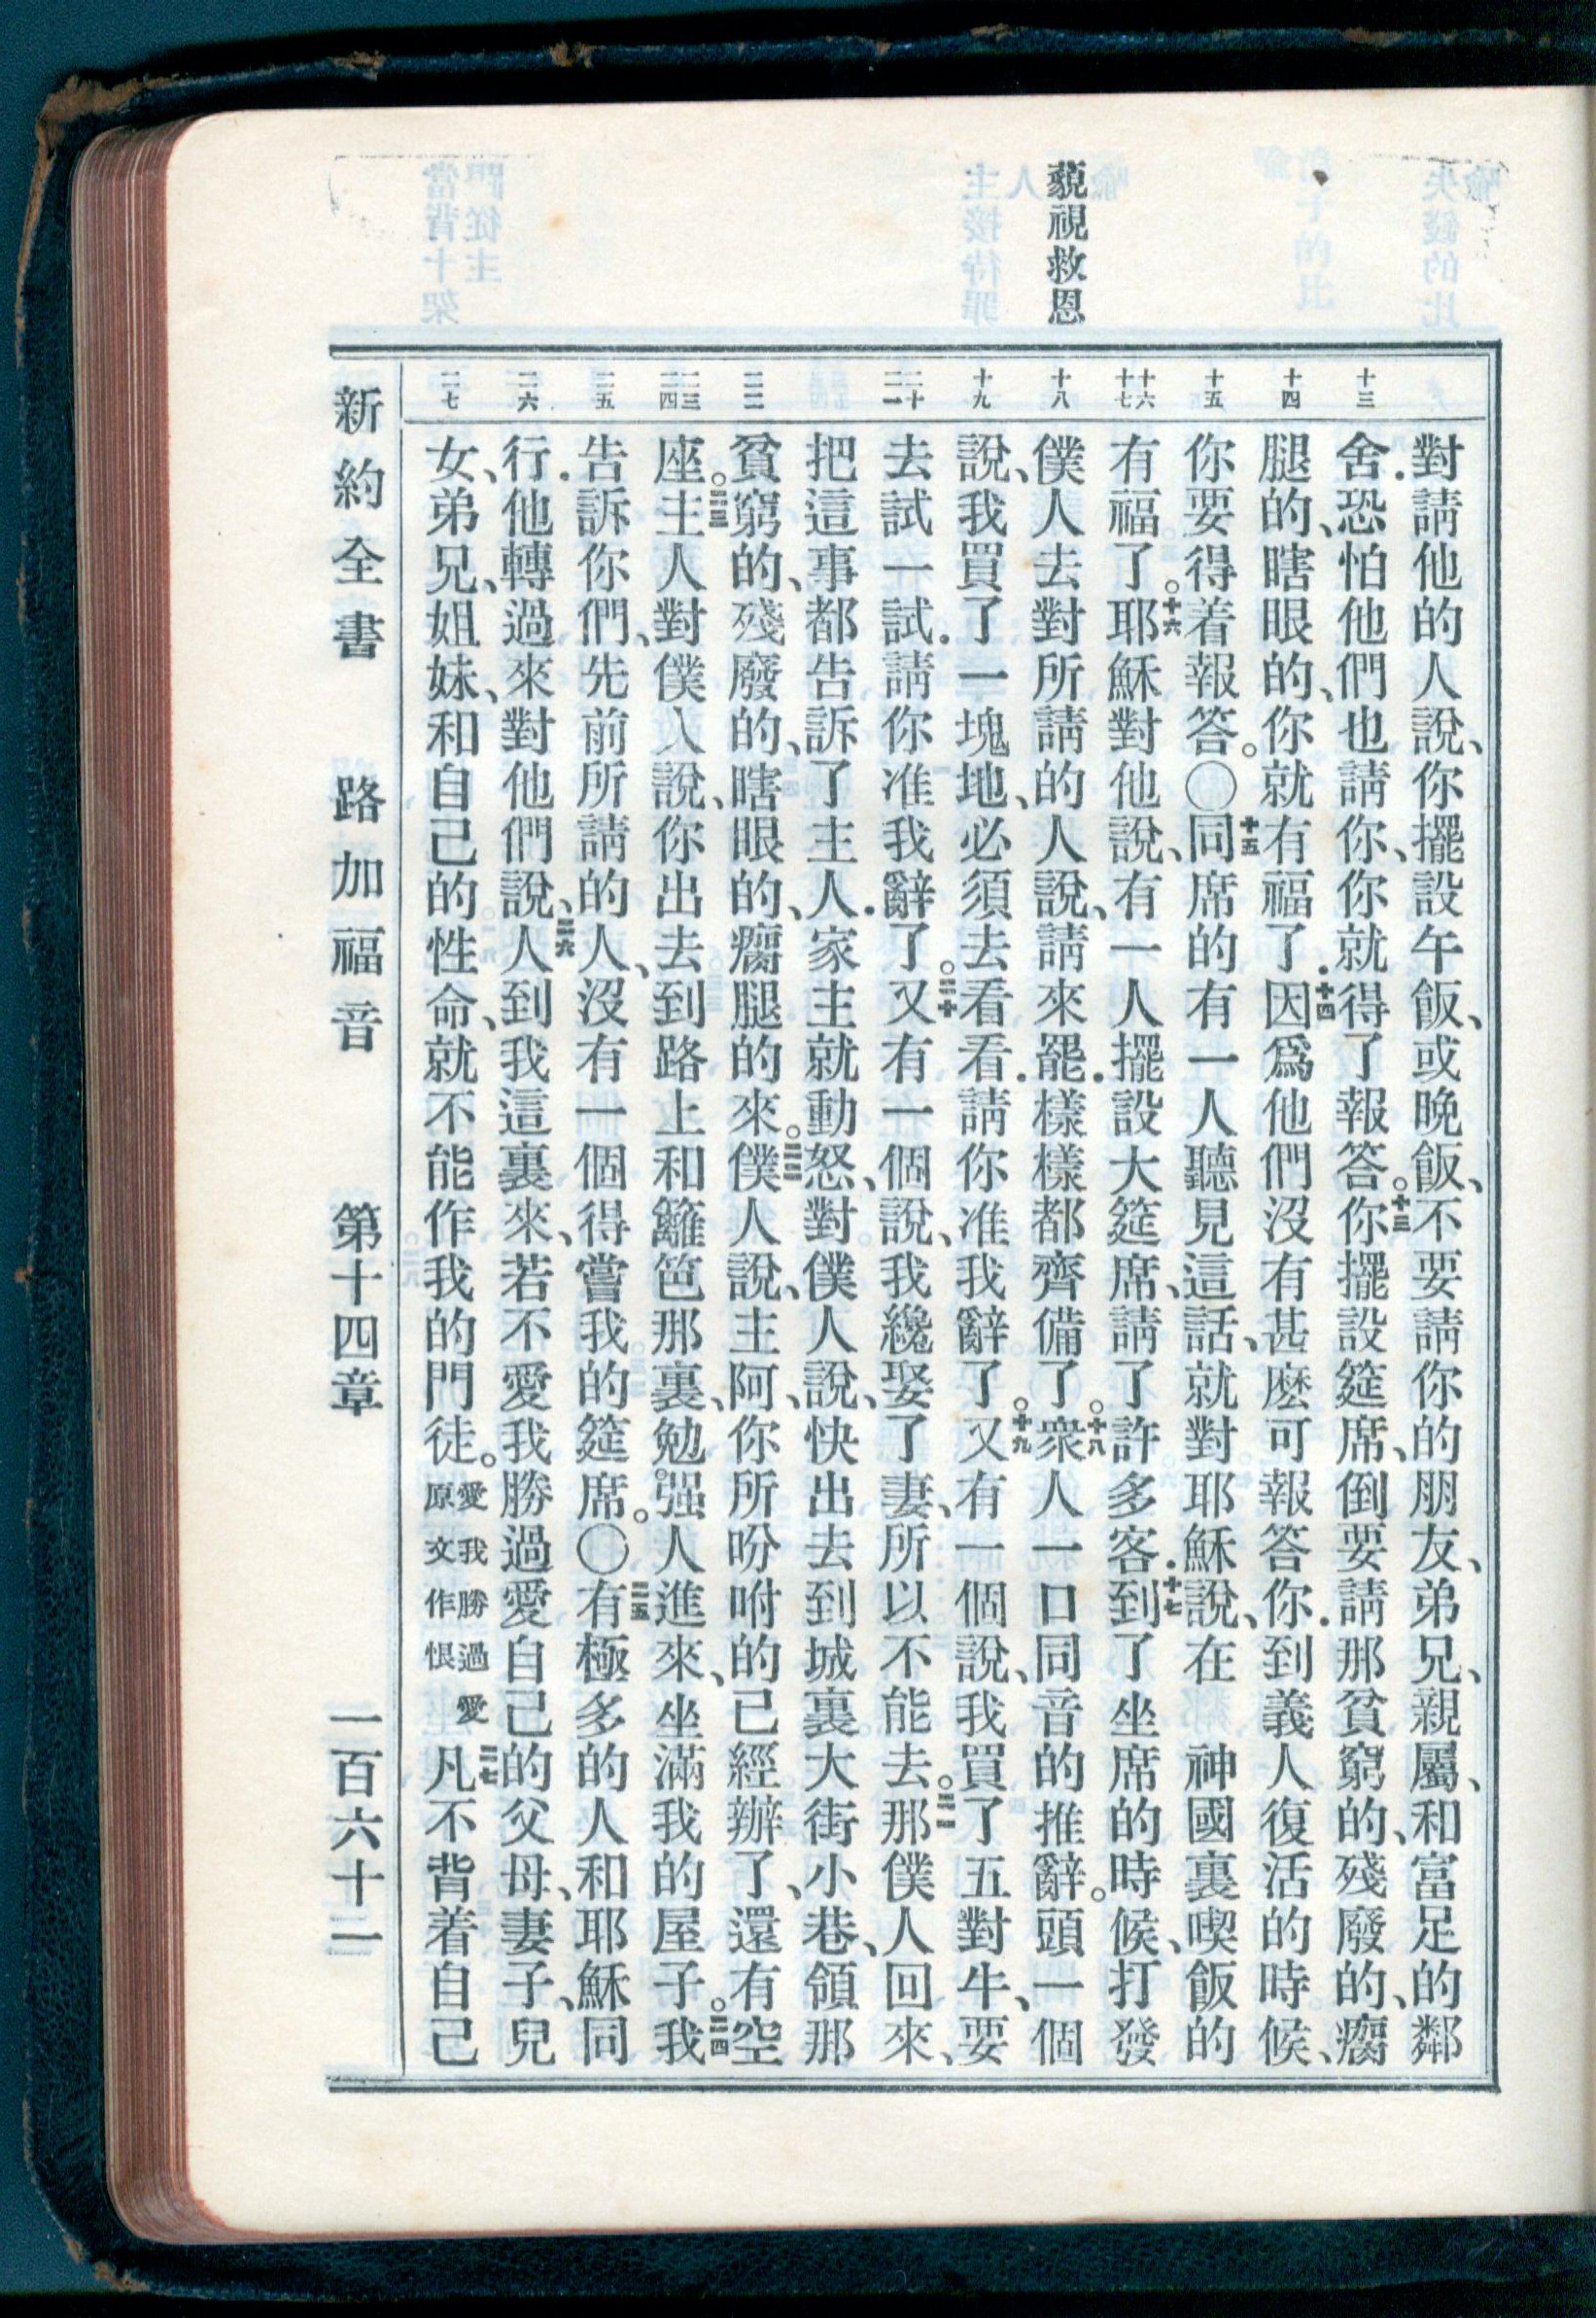 藐視救恩
十三
十四
十五
十六
十七
十八
十九
二十
二一
二二
二三
二四
二五
二六
二七
對請他的人說、你擺設午飯、或晚飯、不要請你的朋友、弟兄、親屬、和富足的鄰
舍．恐怕他們也請你、你就得了報答。十三你擺設筵席、倒要請那貧窮的、殘廢的、瘸
腿的、瞎眼的、你就有福了．十四因爲他們沒有甚麽可報答你．到義人復活的時候、
你要得着報答。〇十五同席的有一人聽見這話、就對耶穌說、在　神國裏喫飯的
有福了。十六耶穌對他說、有一人擺設大筵席、請了許多客．十七到了坐席的時候、打發
僕人去對所請的人說、請來罷．樣樣都齊備了。十八衆人一口同音的推辭。頭一個
說、我買了一塊地、必須去看看．請你准我辭了。十九又有一個說、我買了五對牛、要
去試一試．請你准我辭了。二十又有一個說、我纔娶了妻、所以不能去。二一那僕人回來、
把這事都告訴了主人．家主就動怒、對僕人說、快出去到城裏大街小巷、領那
貧窮的、殘廢的、瞎眼的、瘸腿的來。二二僕人說、主阿、你所吩咐的已經辦了、還有空
座。二三主人對僕人說、你出去到路上和籬笆那裏、勉强人進來、坐滿我的屋子。二四我
告訴你們、先前所請的人、沒有一個得嘗我的筵席。〇二五有極多的人和耶穌同
行．他轉過來對他們說、二六人到我這裏來、若不愛我勝過愛自己的父母、妻子、兒
女、弟兄、姐妹、和自己的性命、就不能作我的門徒。愛我勝過愛原文作恨二七凡不背着自己
新約全書　路加福音　第十四章　一百六十二